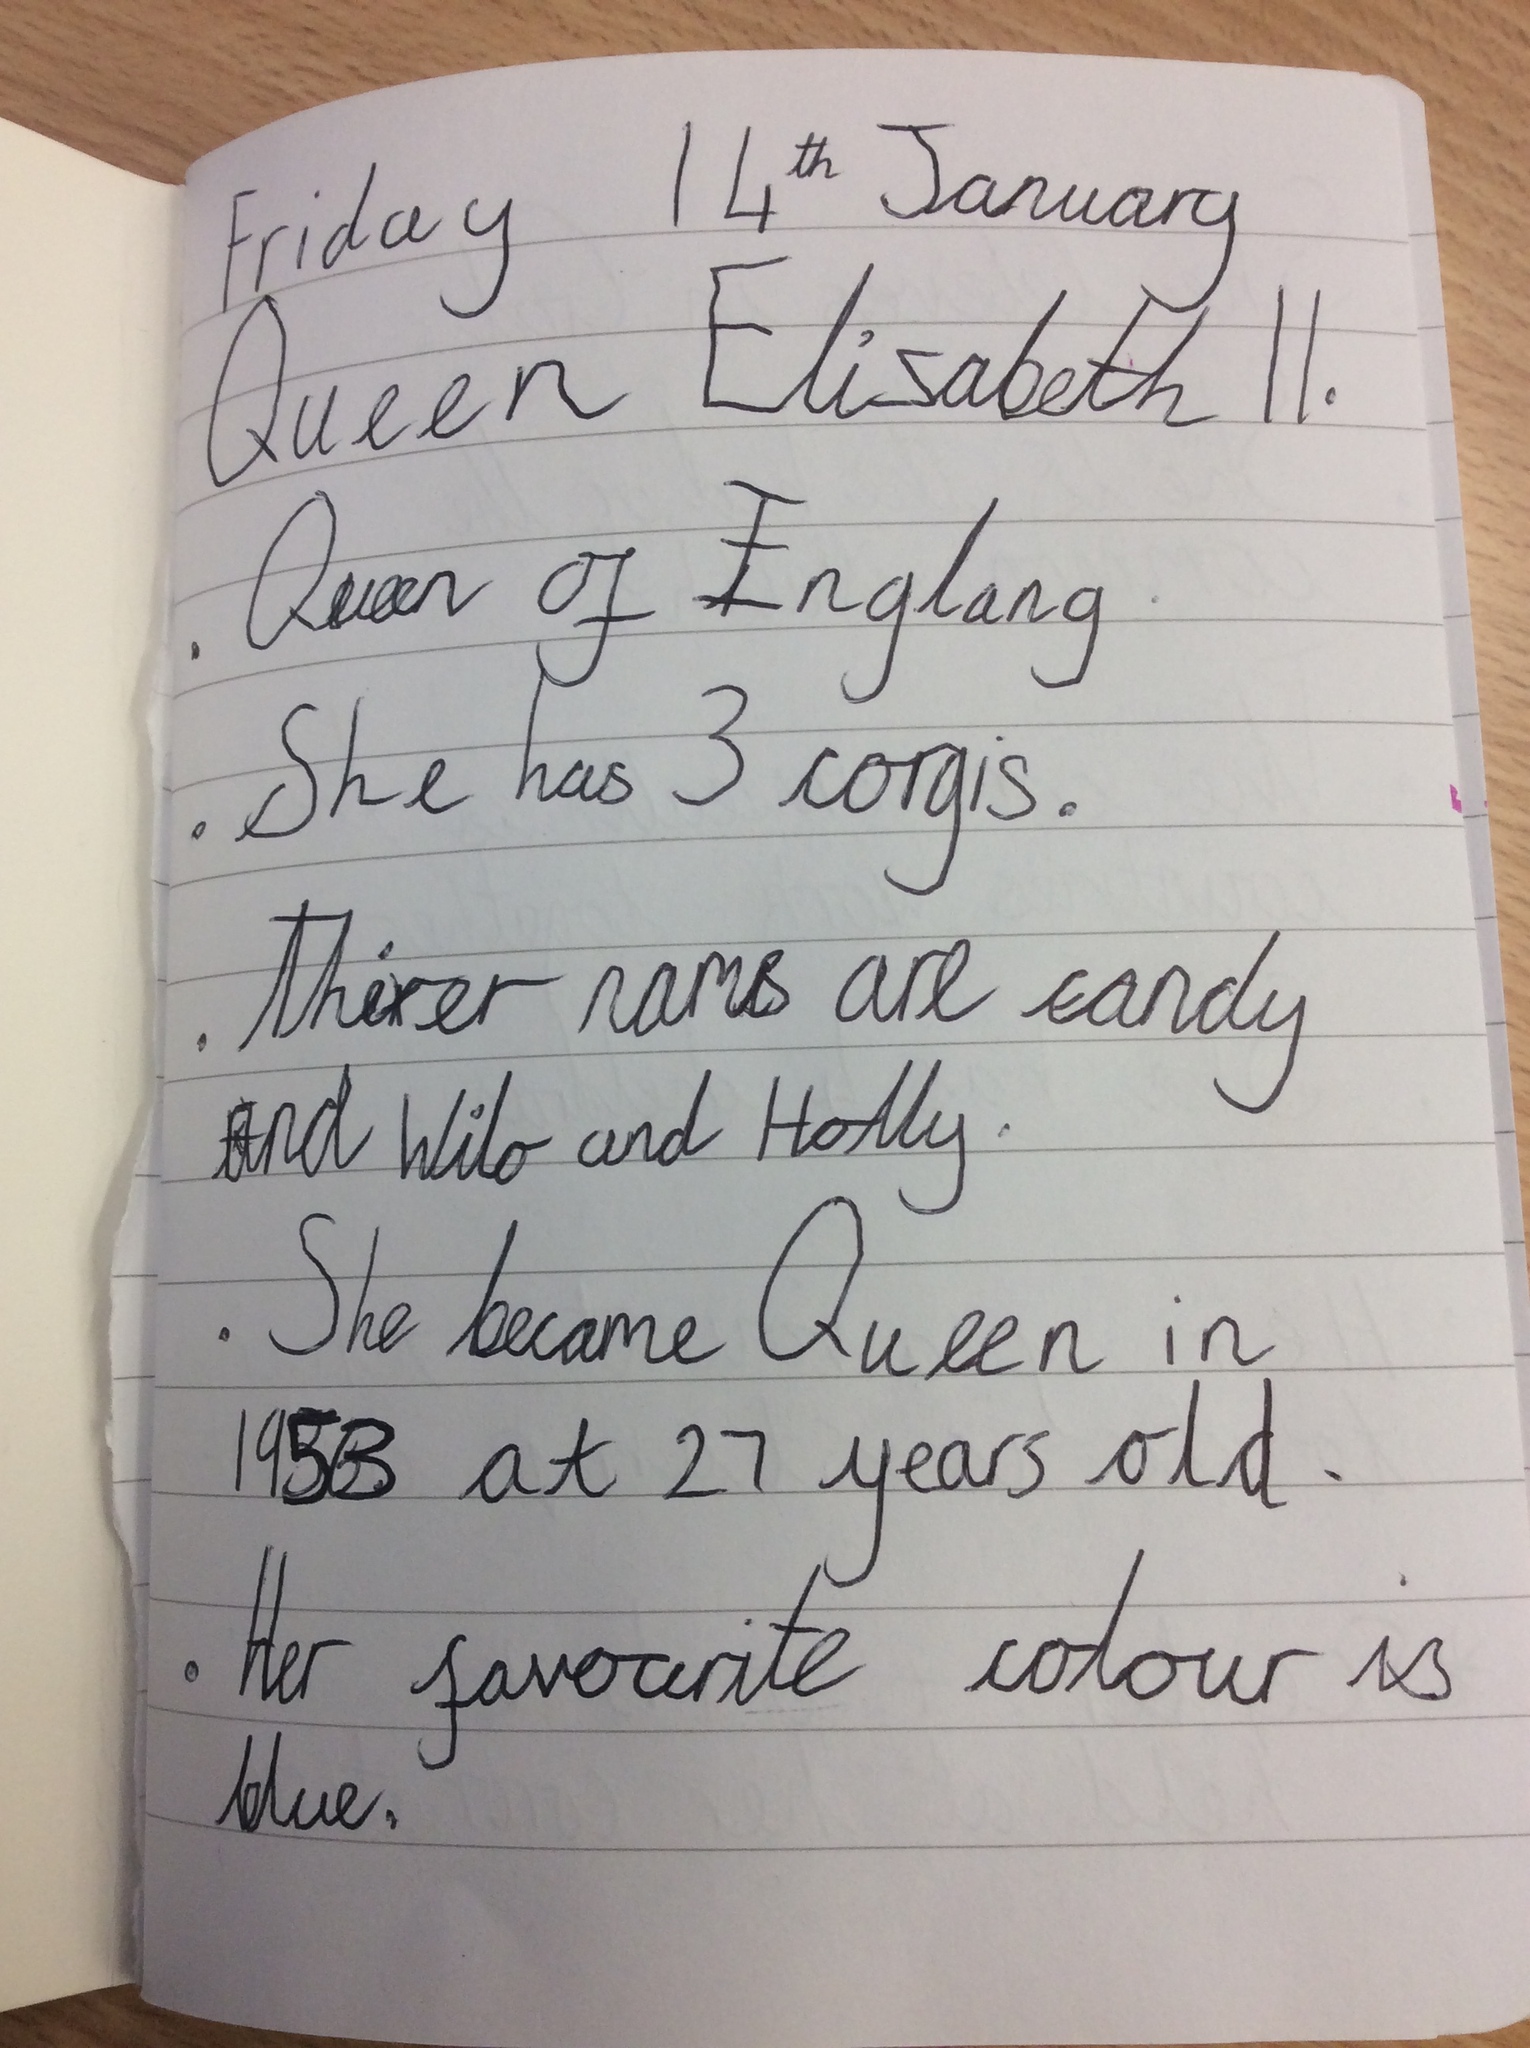 Friday 14th January
Queen Elizabeth II.
. Queen of Englang.
. She has 3 corgis.
. Thirer names are candy
and Wilo and Holly.
. She became Queen in
1953 at 27 years old.
. Her favourite colour is
blue.